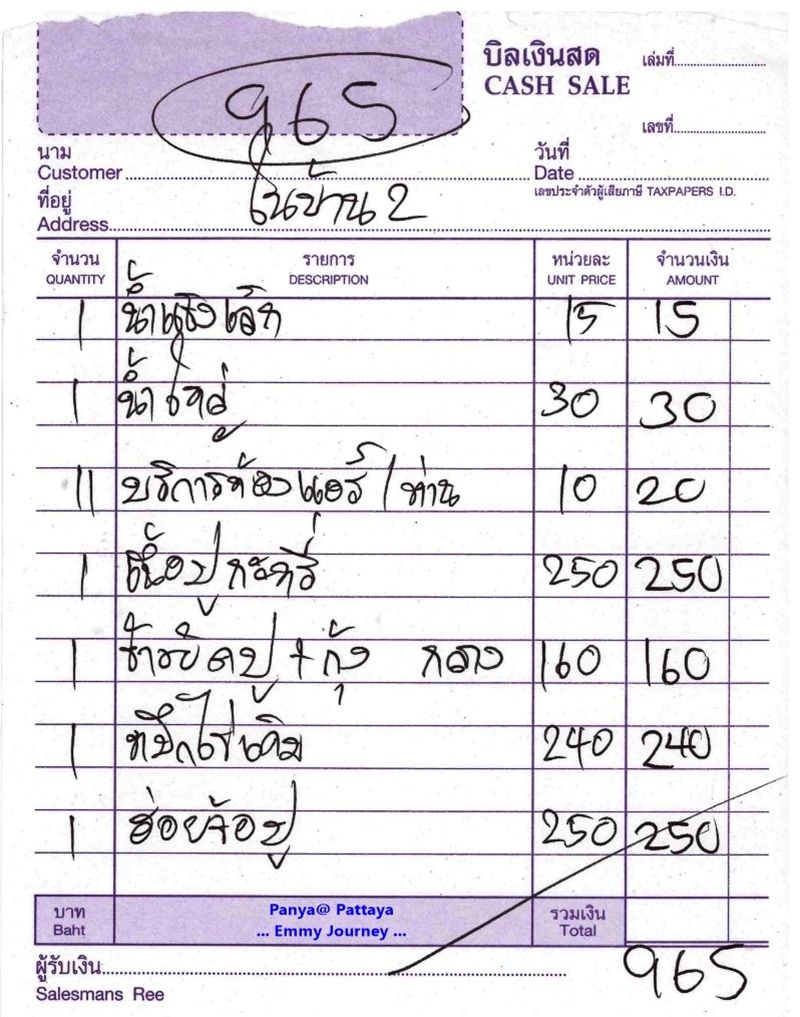 965
บิลเงินสด
CASH SALE
เล่มที่
เลขที่
นาม
Customer
วันที่
Date
ที่อยู่
Address
ในบ้าน 2
เลขประจำตัวผู้เสียภาษี TAXPAPERS I.D.
จำนวน QUANTITY รายการ DESCRIPTION หน่วยละ UNIT PRICE จำนวนเงิน AMOUNT
1 น้ำแข็งเล็ก 15 15
1 น้ำใหญ่ 30 30
11 บริการห้องแอร์ / ท่าน 10 20
1 เนื้อปูกะหรี่ 250 250
1 ข้าวผัดปู + กุ้ง กลาง 160 160
1 หมึกไข่เค็ม 240 240
1 ฮ่อยจ้อปู 250 250
บาท Baht Panya@ Pattaya รวมเงิน Total
... Emmy Journey ...
965
ผู้รับเงิน
Salesmans Ree